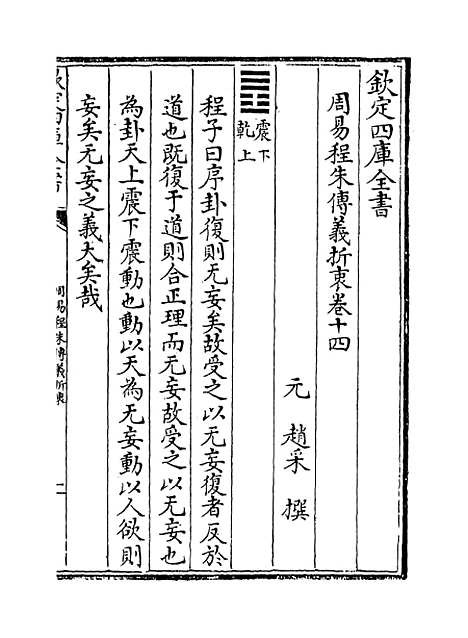 欽定四庫全書
周易程朱傳義折衷卷十四
元 趙采 撰
震下
乾上
程子曰序卦復則无妄矣故受之以无妄復者反於
道也既復于道則合正理而无妄故受之以无妄也
為卦天上震下震動也動以天為无妄動以人欲則
妄矣无妄之義大矣哉
周易程朱傳義折衷